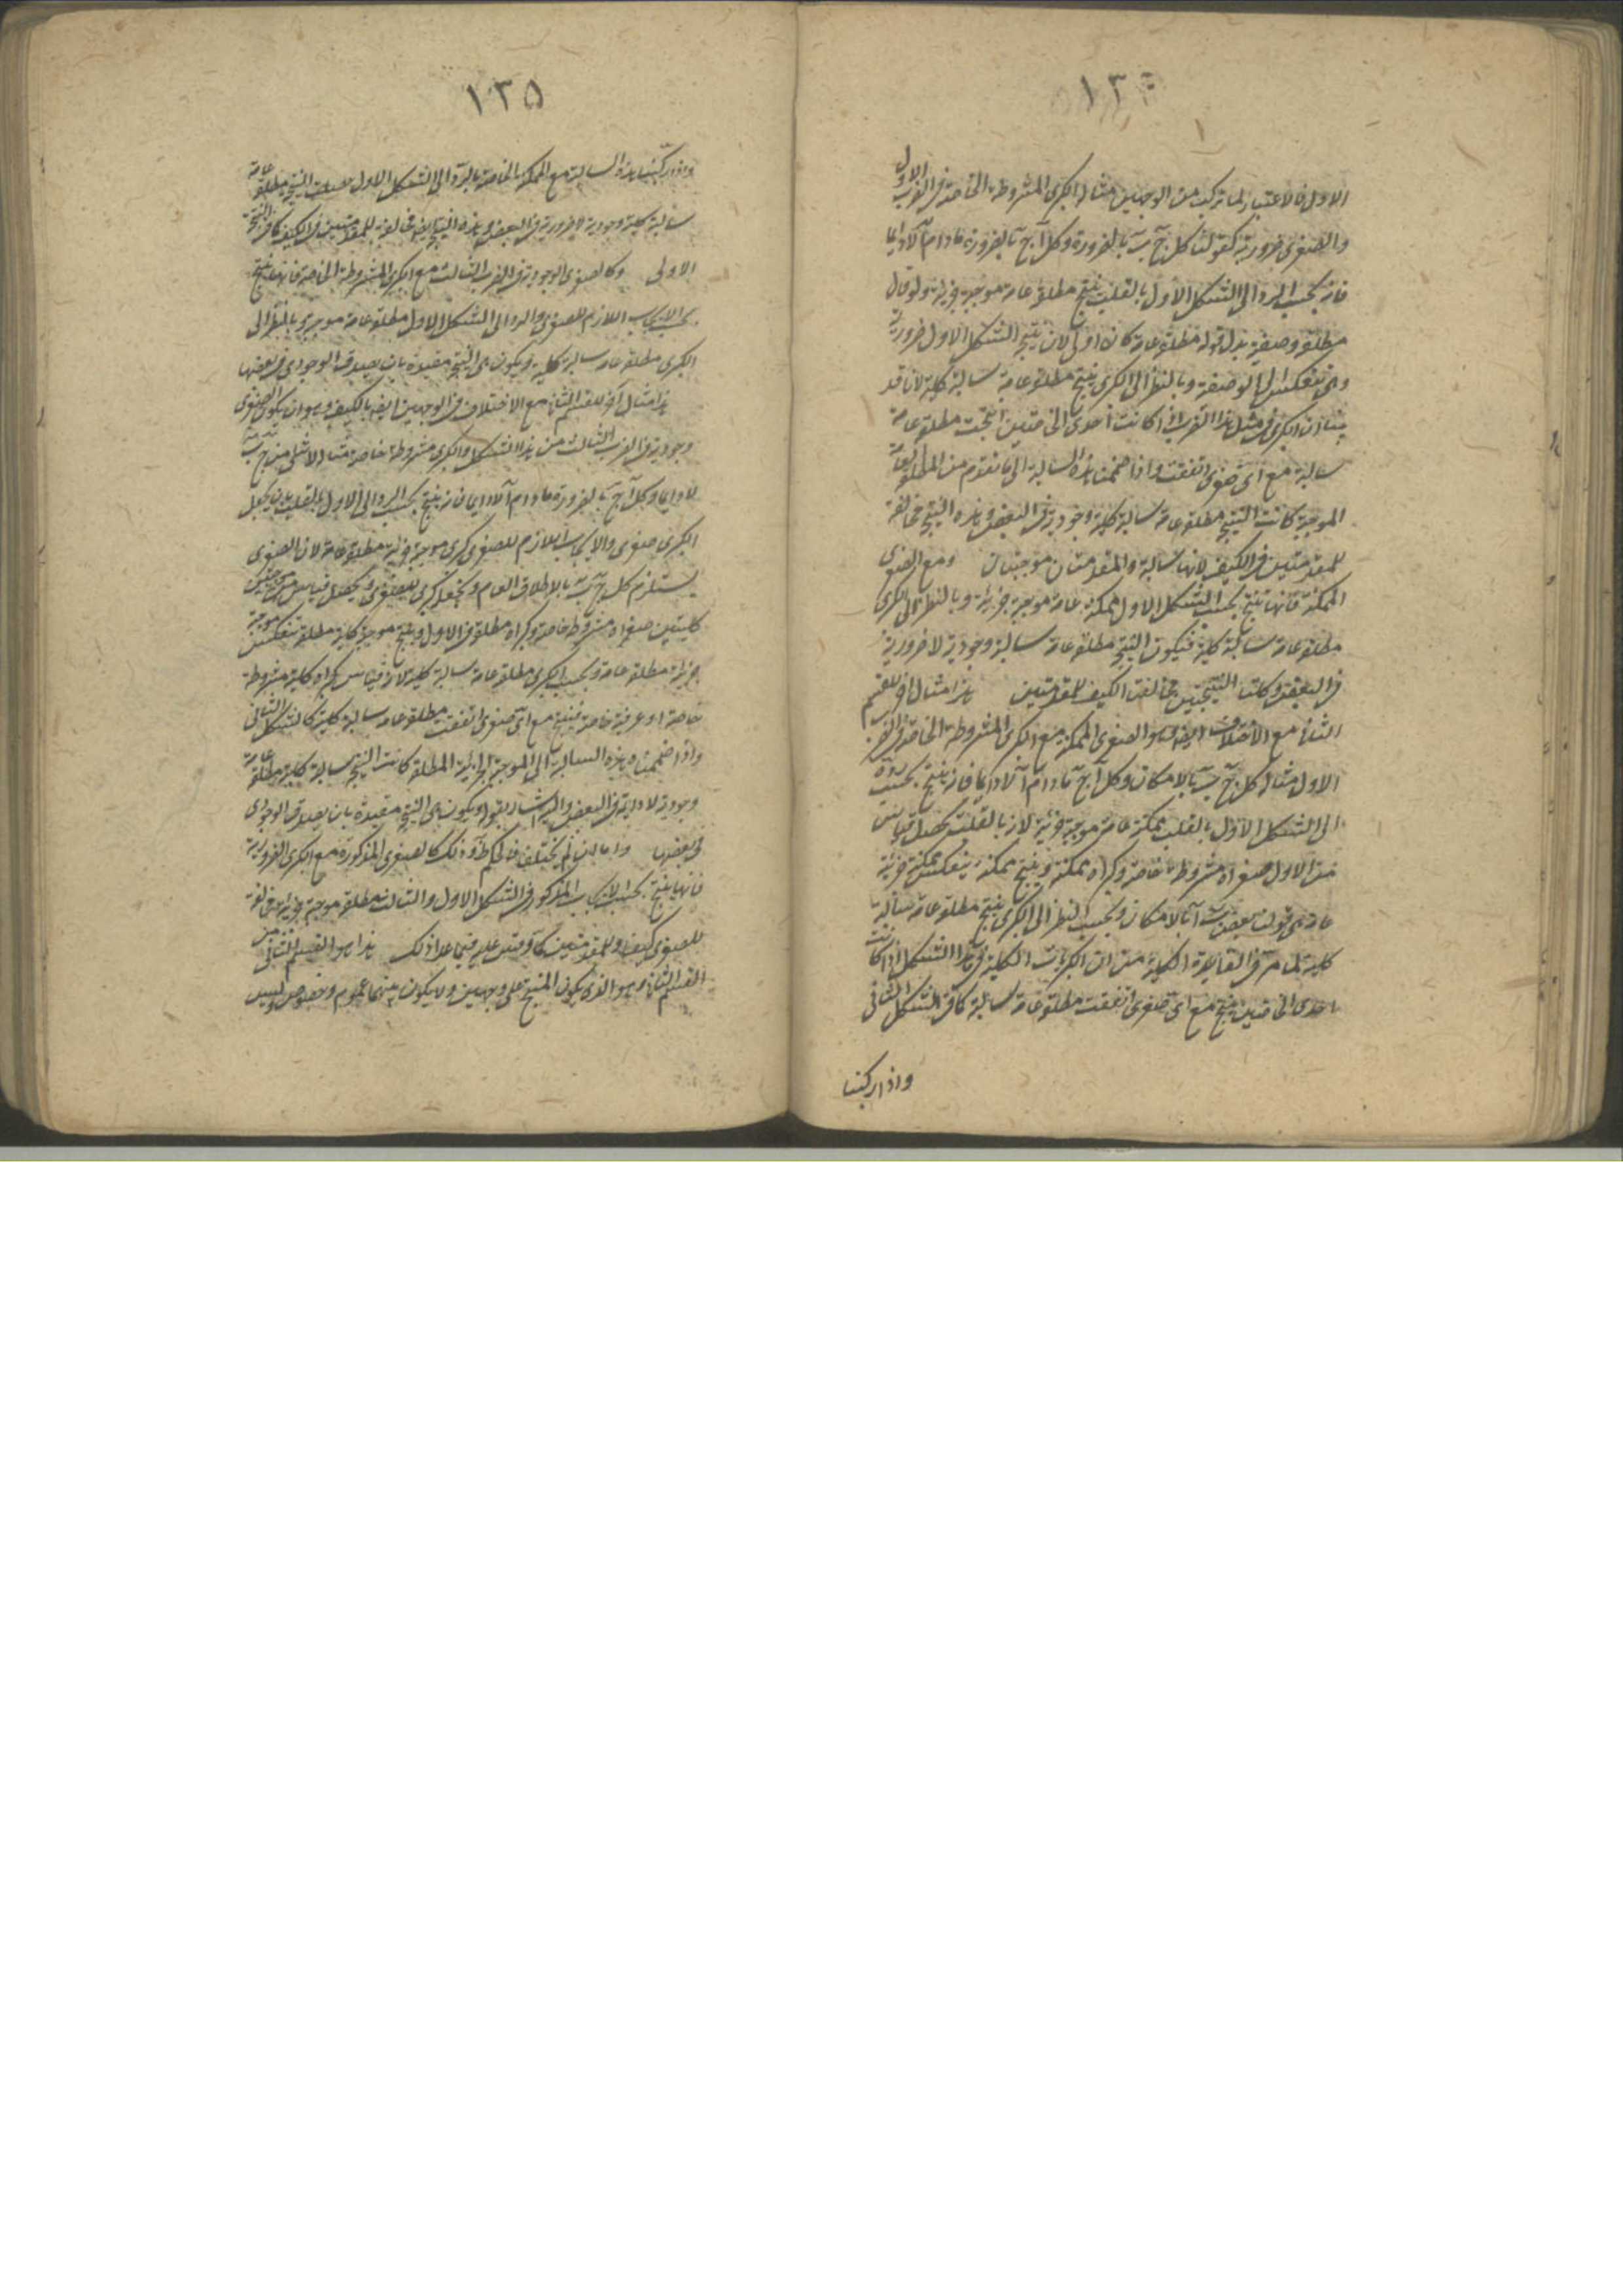 ١٣٤
الاول فالاعتبار لما تركب من الوجهين مثال الكبرى المشروطة الخاصة فى الضرب الاول
والصغرى ضرورية كقولنا كل ج ب بالضرورة وكل آ ج بالضرورة مادام آ لادايما
فانه بحسب الرد الى الشكل الاول بالقلب ينتج مطلقة عامة موجبة جزئية ولو قال
مطلقة وصفية بدل قوله مطلقة عامة كان اولى لانه ينتج الشكل الاول ضرورية
وهى تنعكس الى الوصفية وبالنظر الى الكبرى ينتج مطلقة عامة سالبة كلية لانا قد
بينا ان الكبرى فى مثل هذا الضرب اذا كانت احدى الخاصتين انتجت مطلقة عامة
سالبة مع اى صغرى اتفقت واذا ضممنا هذه السالبة الى ما تقدم من المطلقة العامة
الموجبة كانت النتيجة مطلقة عامة سالبة كلية وجودية فى البعض وهذه النتيجة مخالفة
للمقدمتين فى الكيف لانها سالبة والمقدمتان موجبتان ومع الصغرى
الممكنة فانها تنتج بحسب الشكل الاول ممكنة عامة موجبة جزئية وبالنظر الى الكبرى
مطلقة عامة سالبة كلية فيكون النتيجة مطلقة عامة سالبة وجودية لا ضرورية
فى البعض وكلتا النتيجتين مخالفتا الكيف للمقدمتين هذا مثال آخر للقسم
الثانى مع الاختلاف ايضا وهو الصغرى الممكنة مع الكبرى المشروطة الخاصة فى الضرب
الاول مثاله كل ج ب بالامكان وكل آ ج مادام آ لادايما فانه ينتج بحسب رده
الى الشكل الاول بالقلب ممكنة عامة موجبة جزئية لانه بالقلب يحصل قياس
من الاول صغراه مشروطة خاصة وكبراه ممكنة وينتج ممكنة وينعكس ممكنة جزئية
عامة هى قولنا بعض ب آ بالامكان وبحسب النظر الى الكبرى ينتج مطلقة عامة سالبة
كلية لما مر فى القاعدة الكلية من ان الكبريات الكلية فى هذا الشكل اذا كانت
احدى الخاصتين ينتج مع اى صغرى اتفقت مطلقة عامة سالبة كما فى الشكل الثانى
واذا ركبنا
١٣٥
واذا ركبنا هذه السالبة مع الممكنة الخاصة بالرد الى الشكل الاول صارت النتيجة مطلقة عامة
سالبة كلية وجودية لا ضرورية فى البعض وهذه النتيجة ايضا مخالفة للمقدمتين فى الكيف كما فى النتيجة
الاولى وكالصغرى الوجودية فى الضرب الثالث مع الكبرى المشروطة الخاصة فانها ينتج
بحسب الايجاب اللازم للصغرى والرد الى الشكل الاول مطلقة عامة موجبة وبالنظر الى
الكبرى مطلقة عامة سالبة كلية ويكون هى النتيجة مقيدة بان يصدق الوجودى فى بعضها
هذا مثال آخر للقسم الثانى مع الاختلاف فى الوجهين ايضا بالكيف وهو ان يكون الصغرى
وجودية فى الضرب الثالث من هذا الشكل والكبرى مشروطة خاصة مثاله لا شى من ج ب
لادايما وكل آ ج بالضرورة مادام آ لادايما فانه ينتج بحسب الرد الى الاول بالقلب بان يجعل
الكبرى صغرى والايجاب اللازم للصغرى كبرى موجبة جزئية مطلقة عامة لان الصغرى
يستلزم كل ج ب بالاطلاق العام ونجعله كبرى للصغرى ويحصل قياس من موجبتين
كليتين صغراه مشروطة خاصة وكبراه مطلقة فى الاول وينتج موجبة كلية مطلقة تنعكس موجبة
جزئية مطلقة عامة وبحسب الكبرى مطلقة عامة سالبة كلية لانه قياس كبراه كلية مشروطة
خاصة او عرفية خاصة فينتج مع اى صغرى اتفقت مطلقة عامة سالبة كلية كالشكل الثانى
واذا ضممنا هذه السالبة الى الموجبة الجزئية المطلقة كانت النتيجة سالبة كلية مطلقة عامة
وجودية لادايمة فى البعض واليه اشار بقوله ويكون هى النتيجة مقيدة بان يصدق الوجودى
فى بعضها واما ان لم يختلف فالحكم ظ وذلك كالصغرى المذكورة مع الكبرى الضرورية
فانها ينتج بحسب الايجاب المذكور فى الشكل الاول والثالث مطلقة موجبة جزئية مخالفة
للصغرى كيفا وللمقدمتين كما وقس عليه فيما عدا ذلك هذا هو القسم الثانى من
القسم الثانى وهو الذى يكون المنتج على وجهين ولا يكون بينهما عموم وخصوص وليس